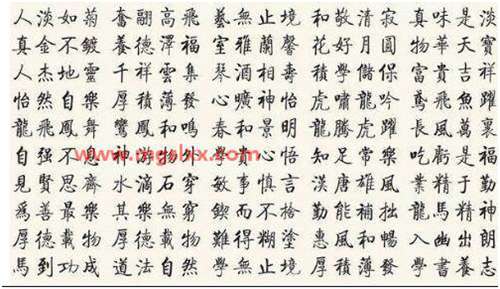 人淡如菊 奮翮高飛 藝無止境 和敬清寂 真味是淡
真金不鍍 養德澤福 室雅蘭馨 花好月圓 物華天寶
人杰地靈 千祥雲集 琴酒相壽 積學儲保 富貴吉祥
怡然自樂 厚積薄發 心曠神怡 虎嘯龍吟 鳶飛魚躍
龍飛鳳舞 鸞鳳和鳴 春和景明 龍騰虎躍 長風萬裏
自强不息 神物外 心悟 知足常樂 吃虧是福
見賢思齊 水滴石穿 敏事慎言 漢唐雄風 業精于勤
爲善最樂 其樂無窮 鍥而不捨 勤能補拙 龍馬精神
厚德載物 厚德載物 難得糊塗 惠風和暢 入幽出朗
馬到功成 道法自然 學無止境 厚積薄發 學書養志